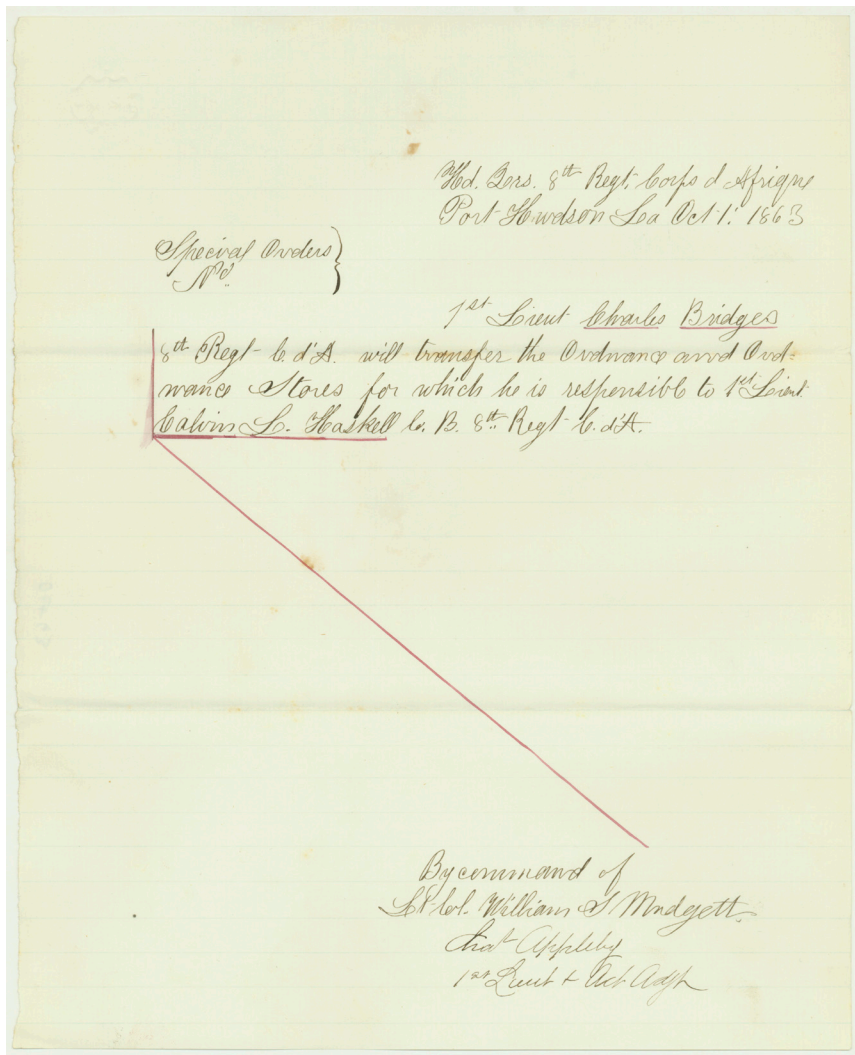 Hd. Qrs. 8th Regt. Corps d Afrique
Port Hudson La Oct 1st 1863
Special Orders }
No.
1st Lieut Charles Bridges
8th Regt C. d'A. will transfer the Ordnance and Ord-
nance Stores for which he is responsible to 1st Lieut.
Calvin L. Haskell Co. B. 8th Regt C. d'A.
By command of
Lt Col. William S Mudgett
Chas Appleby
1st Lieut & Act Adjt